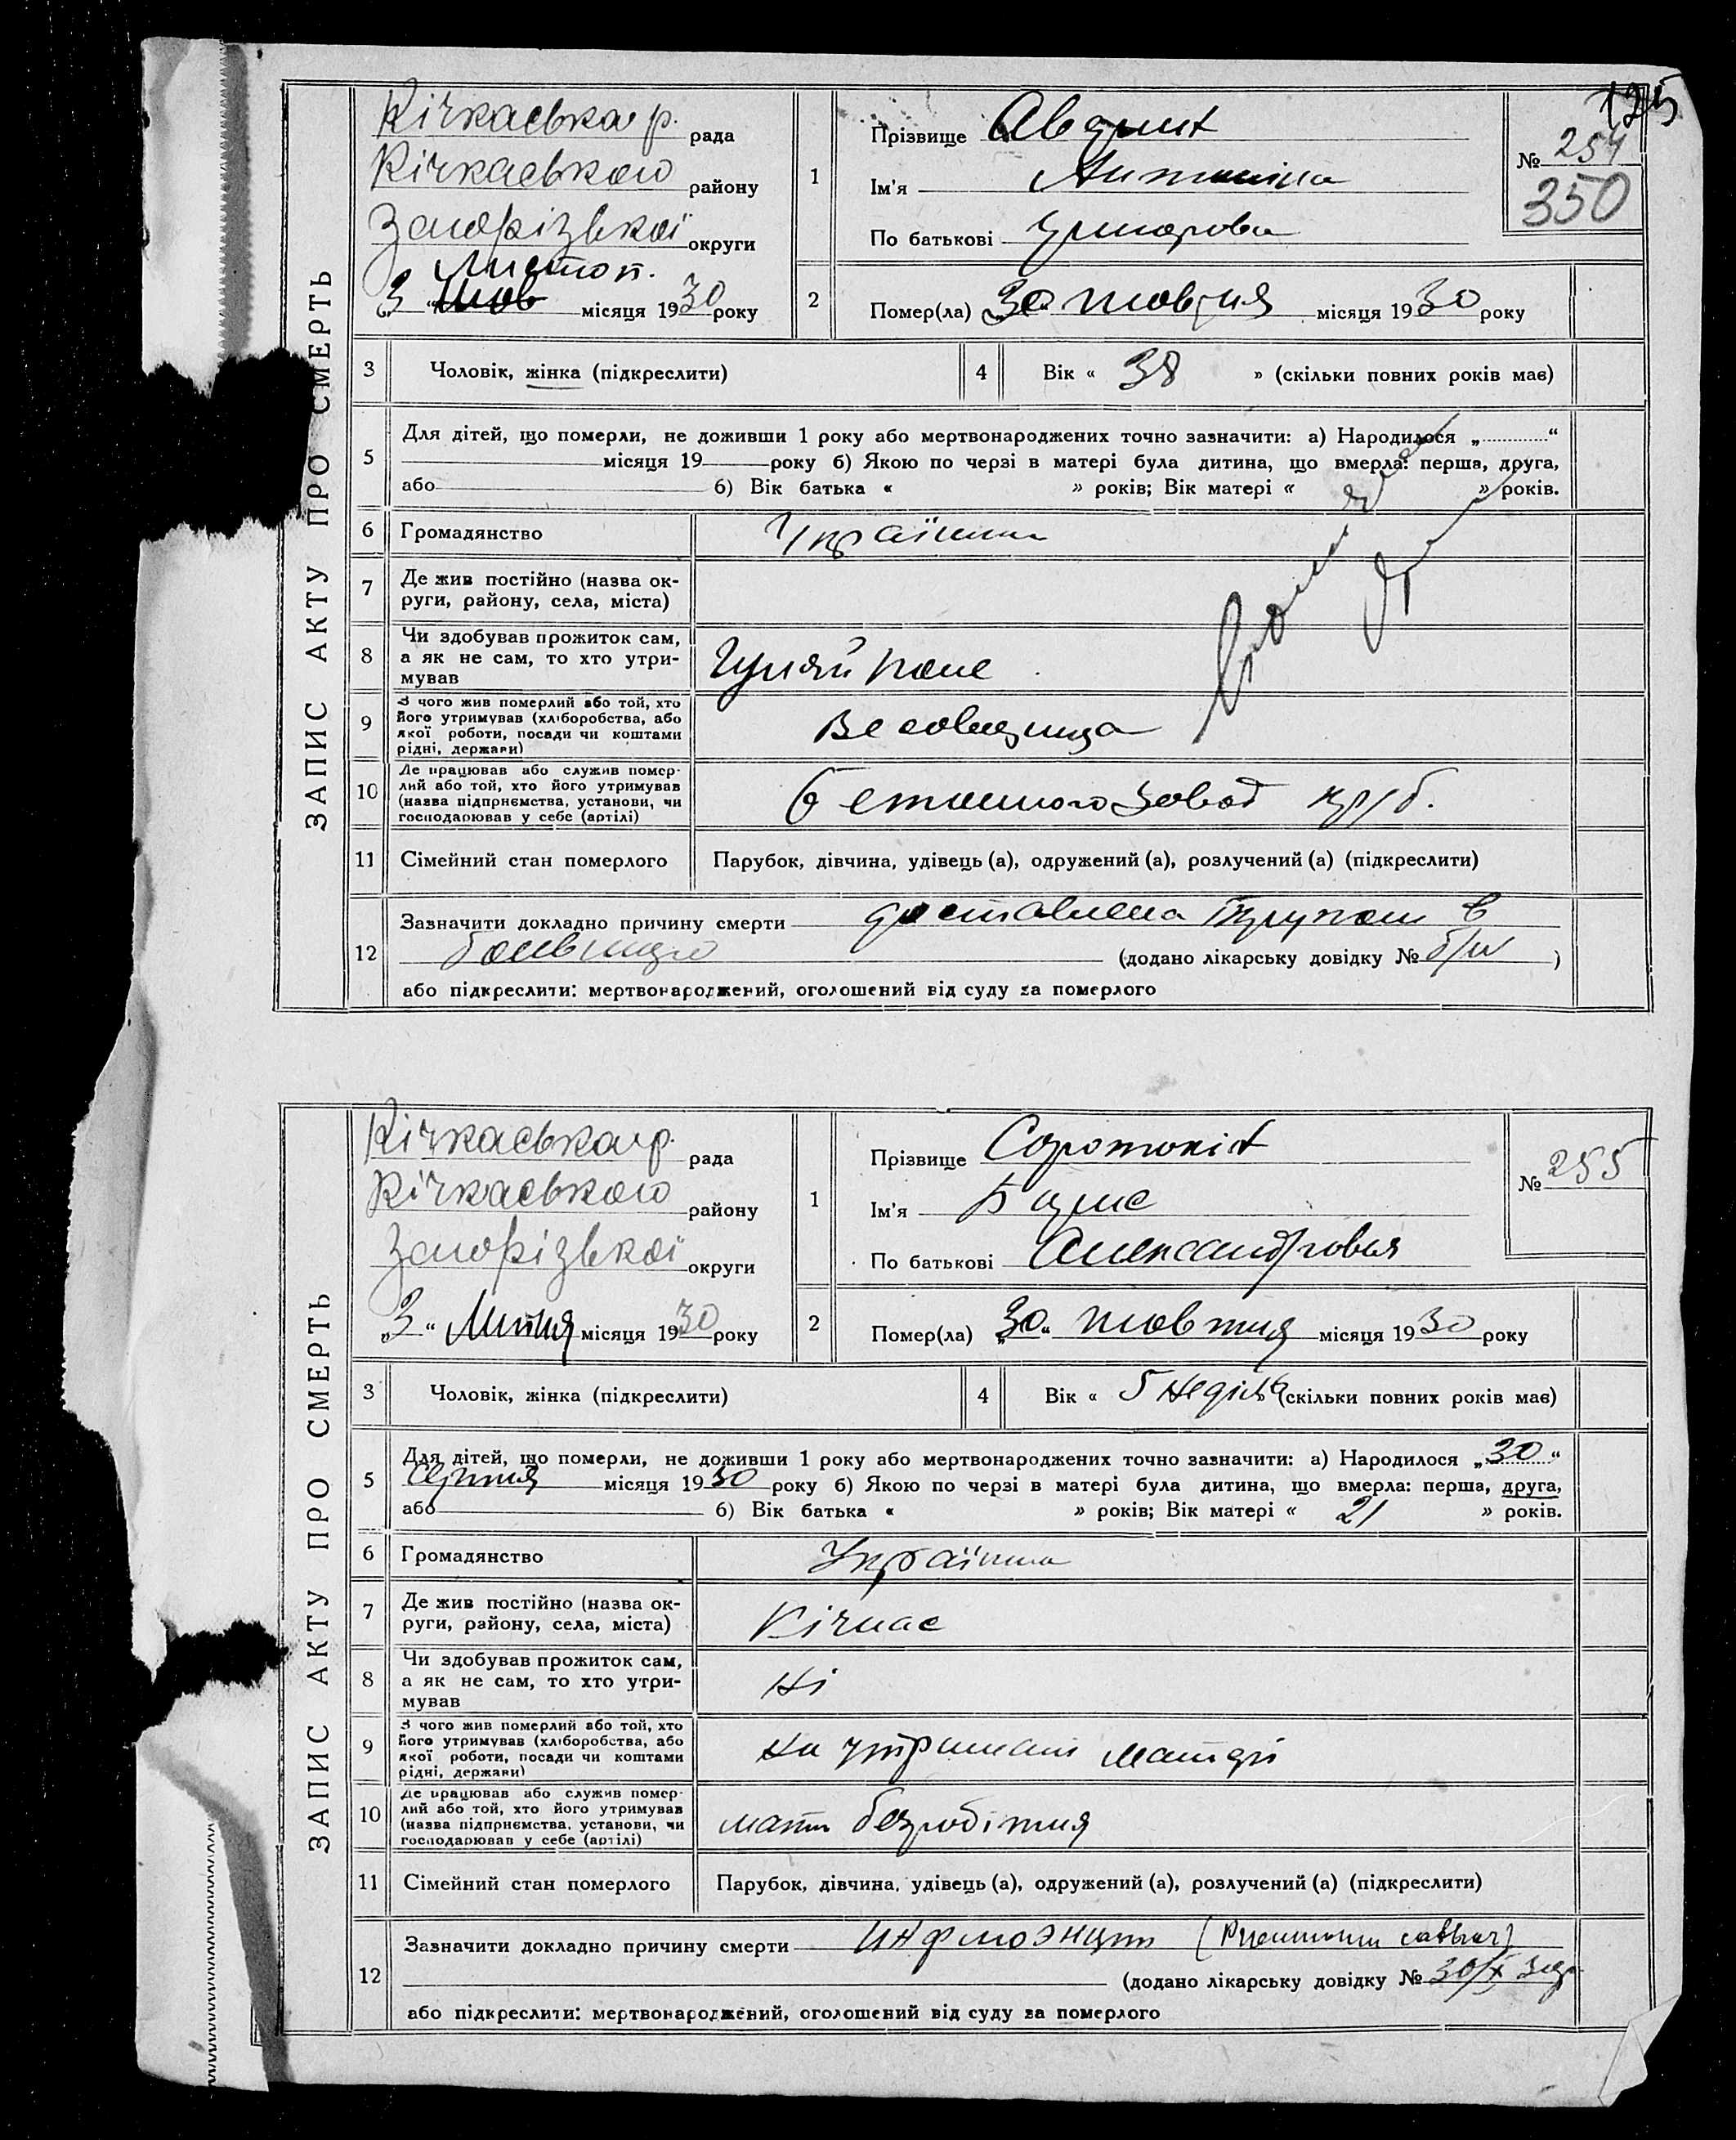 125
ЗАПИС АКТУ ПРО СМЕРТЬ
Кічкаська р. рада
Кічкаського району
Запорізької округи
Листоп.
„3“ місяця 1930 року
1
Прізвище
Ім'я Антоніна
По батькові
№ 254
350
2
Помер(ла) „30“ жовтня місяця 1930 року
3
Чоловік, жінка (підкреслити)
4
Вік « 38 » (скільки повних років має)
5
Для дітей, що померли, не доживши 1 року або мертвонароджених точно зазначити: а) Народилося „ “
місяця 19 року б) Якою по черзі в матері була дитина, що вмерла: перша, друга,
або б) Вік батька « » років; Вік матері « » років.
6
Громадянство Українка
7
Де жив постійно (назва ок-
руги, району, села, міста)
8
Чи здобував прожиток сам,
а як не сам, то хто утри-
мував
Гуляй поле
9
З чого жив померлий або той, хто
його утримував (хліборобства, або
якої роботи, посади чи коштами
рідні, держави)
10
Де працював або служив помер-
лий або той, хто його утримував
(назва підприємства, установи, чи
господарював у себе (артілі)
завод
11
Сімейний стан померлого
Парубок, дівчина, удівець (а), одружений (а), розлучений (а) (підкреслити)
12
Зазначити докладно причину смерти доставлена трупом в
больницю (додано лікарську довідку № б/н )
або підкреслити: мертвонароджений, оголошений від суду за померлого
ЗАПИС АКТУ ПРО СМЕРТЬ
Кічкаська р. рада
Кічкаського району
Запорізької округи
„3“ місяця 1930 року
1
Прізвище
Ім'я Борис
По батькові Александровья
№ 255
2
Помер(ла) „30“ жовтня місяця 1930 року
3
Чоловік, жінка (підкреслити)
4
Вік « 5 неділь (скільки повних років має)
5
Для дітей, що померли, не доживши 1 року або мертвонароджених точно зазначити: а) Народилося „30“
серпня місяця 1930 року б) Якою по черзі в матері була дитина, що вмерла: перша, друга,
або б) Вік батька « » років; Вік матері « 21 » років.
6
Громадянство Українка
7
Де жив постійно (назва ок-
руги, району, села, міста)
Кічкас
8
Чи здобував прожиток сам,
а як не сам, то хто утри-
мував
Ні
9
З чого жив померлий або той, хто
його утримував (хліборобства, або
якої роботи, посади чи коштами
рідні, держави)
на утриманні матері
10
Де працював або служив помер-
лий або той, хто його утримував
(назва підприємства, установи, чи
господарював у себе (артілі)
мати безробітня
11
Сімейний стан померлого
Парубок, дівчина, удівець (а), одружений (а), розлучений (а) (підкреслити)
12
Зазначити докладно причину смерти
(додано лікарську довідку №
або підкреслити: мертвонароджений, оголошений від суду за померлого